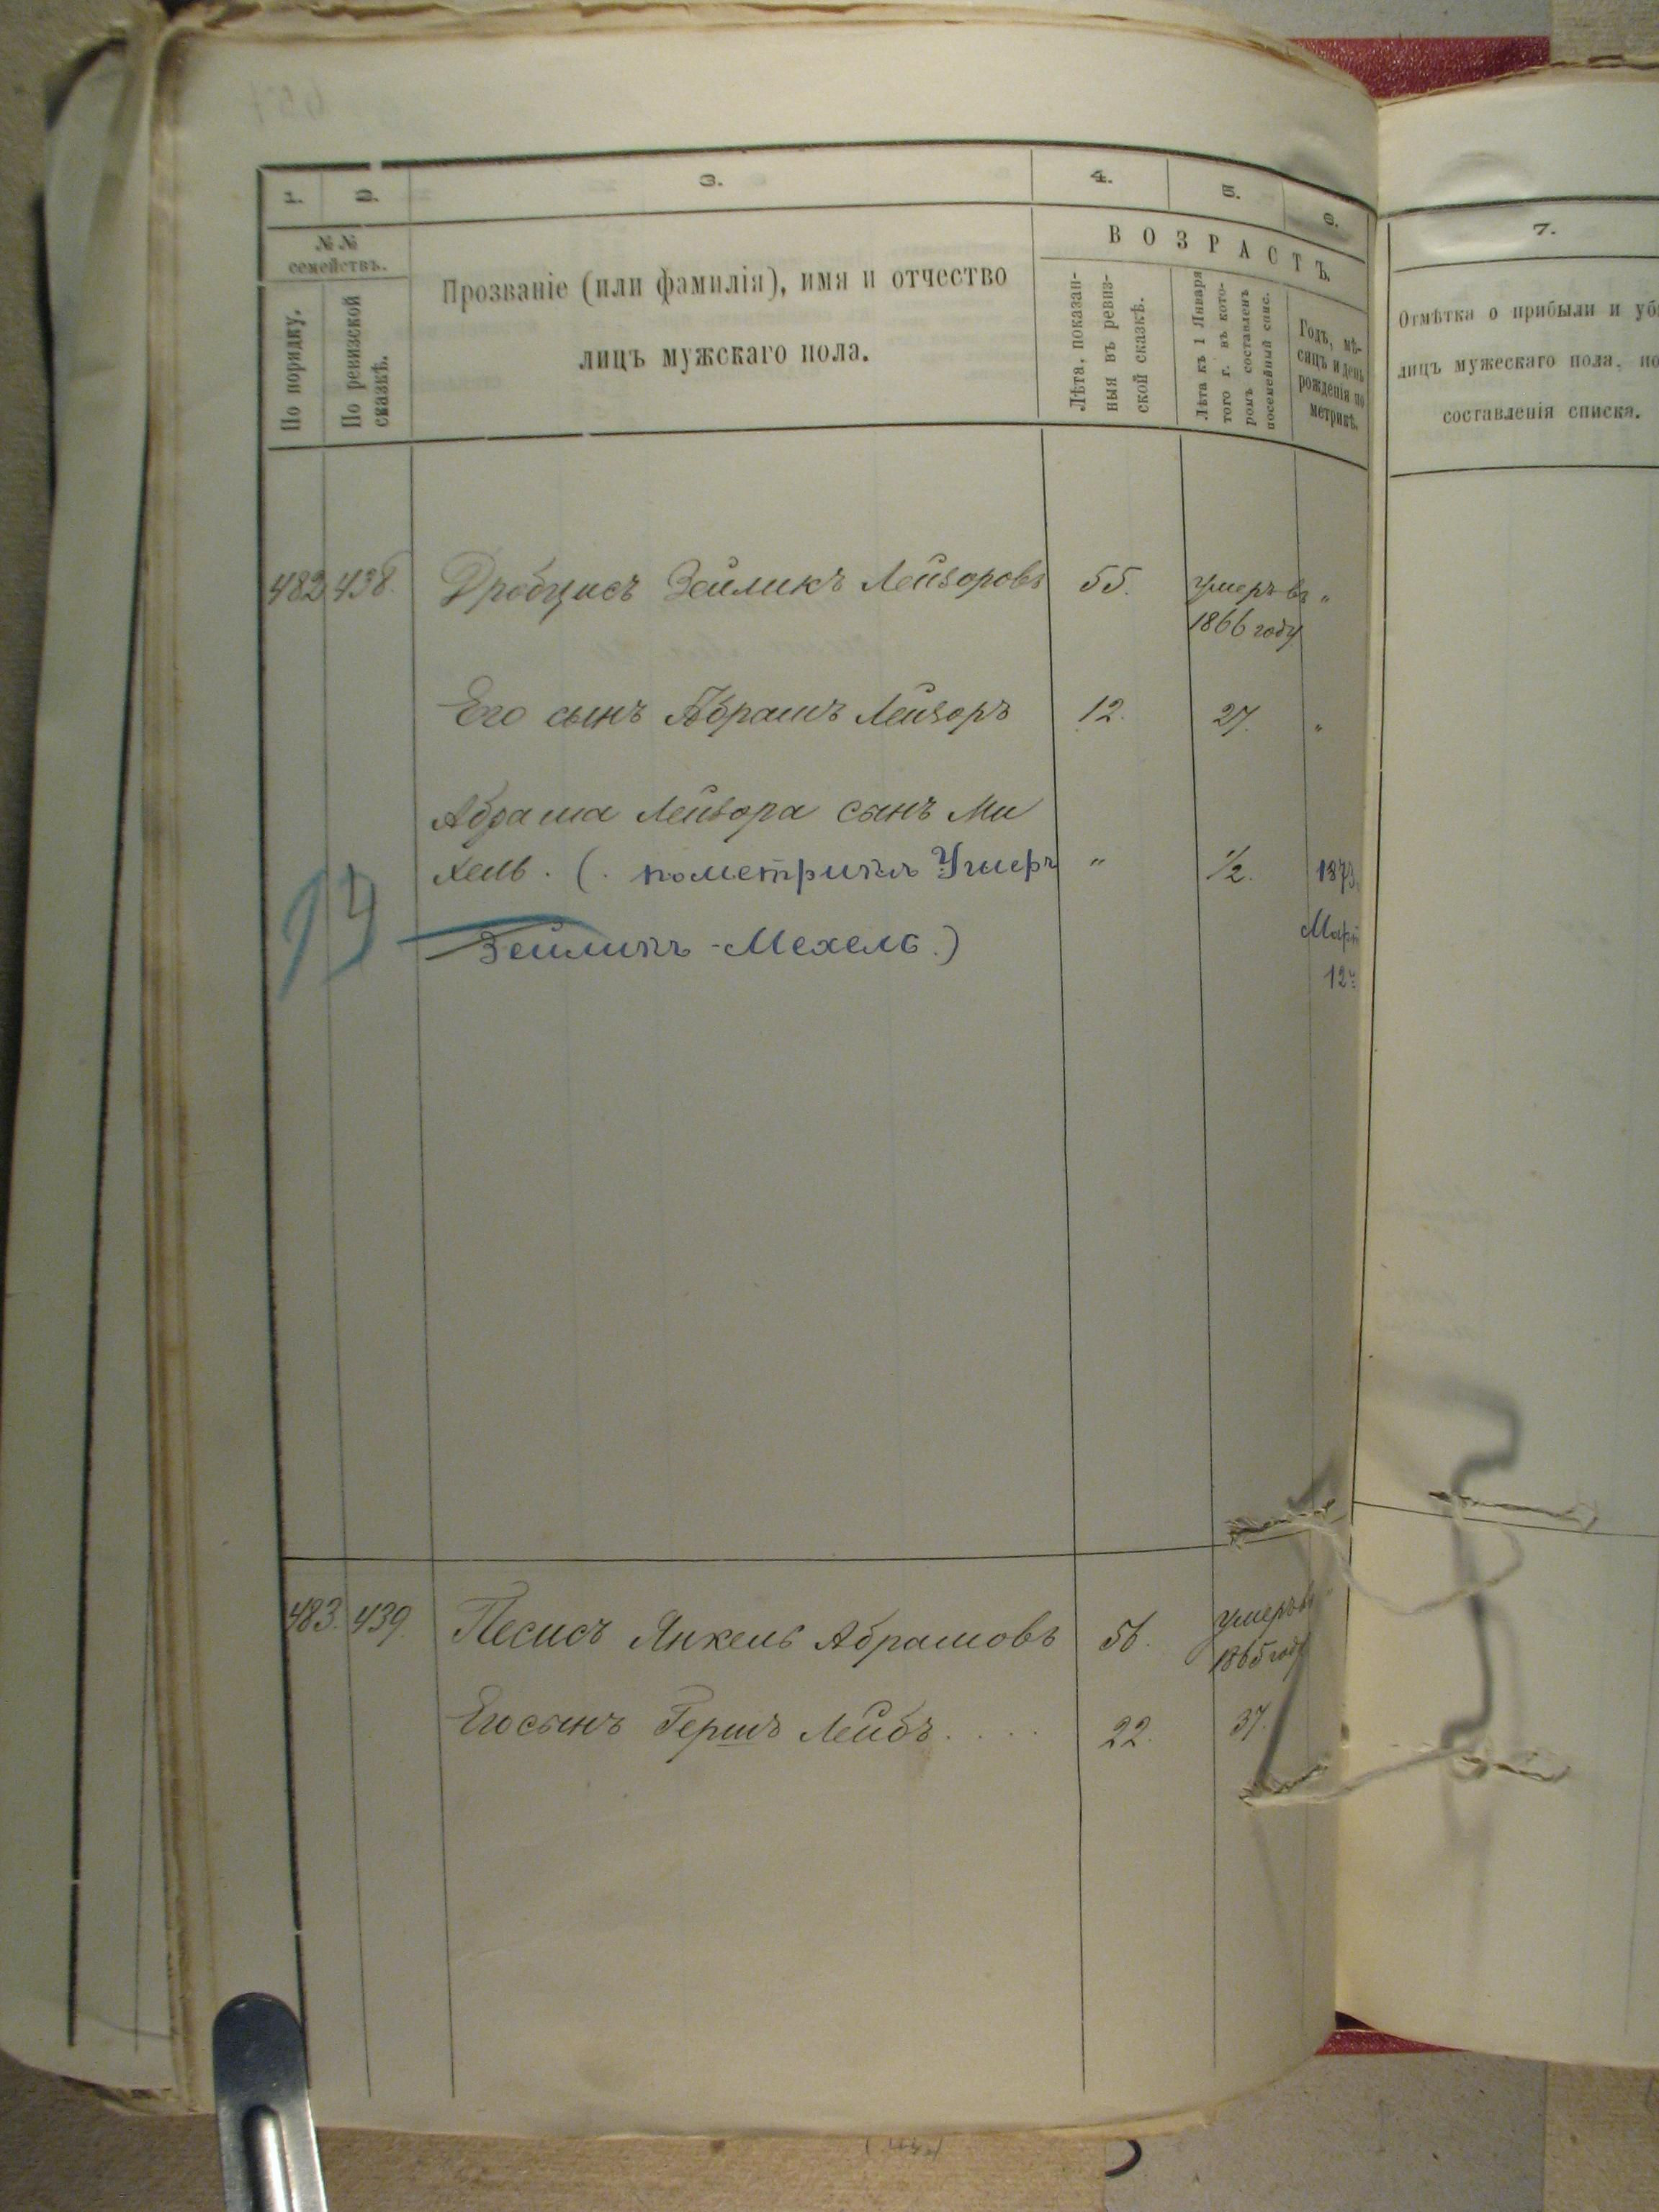 1. 2. 3. 4. 5. 6.
№ №
семействъ.
По порядку.
По ревизской
сказкѣ.
Прозваніе (или фамилія), имя и отчество
лицъ мужскаго пола.
ВОЗРАСТЪ.
Лѣта, показан-
ныя въ ревиз-
ской сказкѣ.
Лѣта къ 1 Января
того г. въ кото-
ромъ составленъ
посемейный спис.
Годъ, мѣ-
сяцъ и день
рожденія по
метрикѣ.
482 438. Дробцисъ Зеймикъ Лейзоровъ 55. умеръ въ "
1866 году
Его сынъ Абрамъ Лейзоръ 12. 27. "
Абрама Лейзора сынъ Ми
хель. (. по метрикѣ Умеръ " ½. 1873
Зеиликъ-Мехель.) Март
12
19
483. 439. Песисъ Янкель Абрамовъ 56. умеръ въ
1865 году
Его сынъ Гершъ Лейбъ.... 22. 37.
7.
Отмѣтка о прибыли и уб
лицъ мужескаго пола, по
составленія списка.